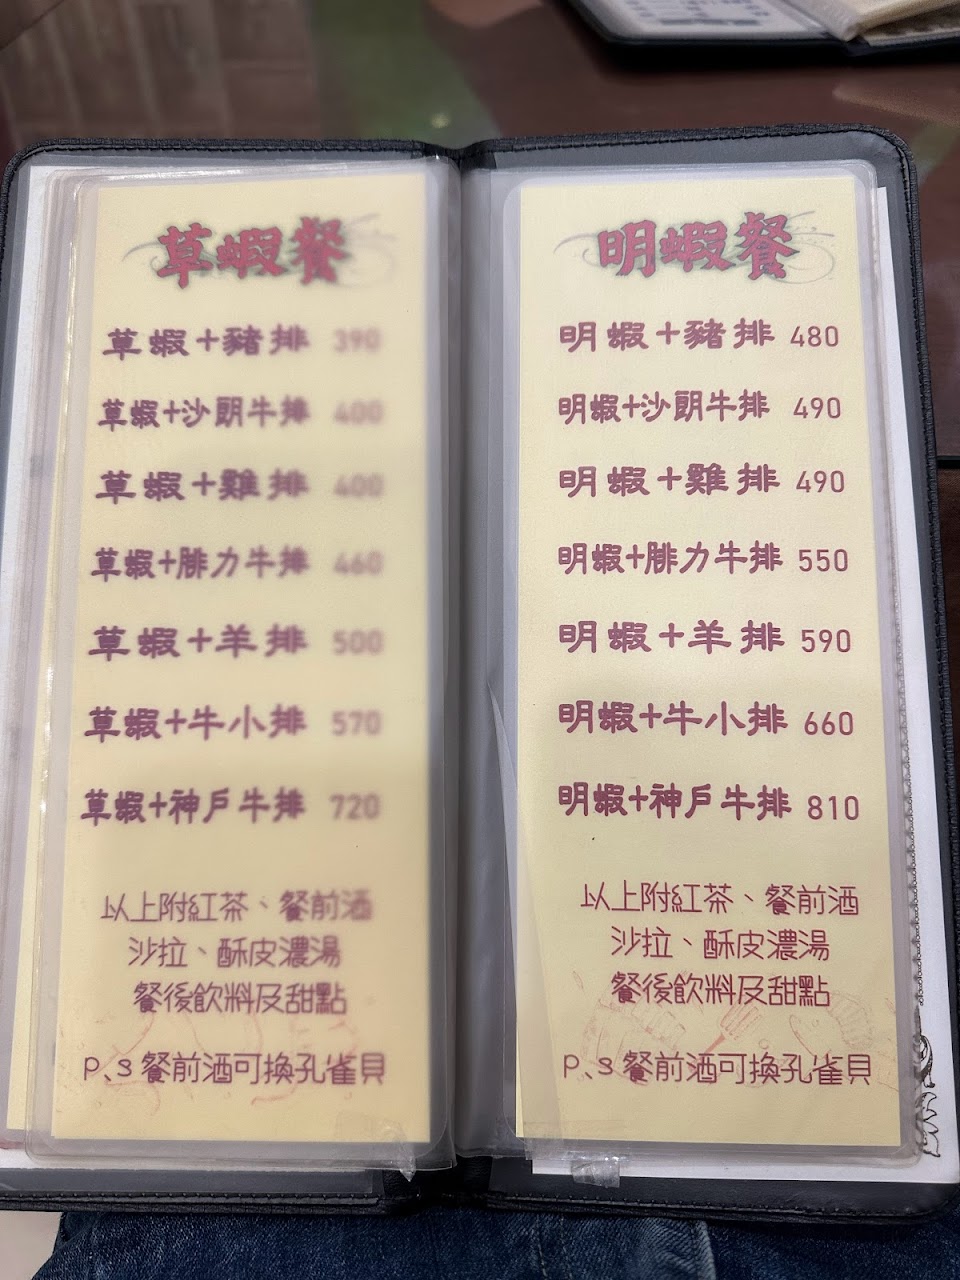 草蝦餐
草蝦+豬排 390
草蝦+沙朗牛排 400
草蝦+雞排 400
草蝦+腓力牛排 460
草蝦+羊排 500
草蝦+牛小排 570
草蝦+神戶牛排 720
以上附紅茶、餐前酒
沙拉、酥皮濃湯
餐後飲料及甜點
P、S餐前酒可換孔雀貝
明蝦餐
明蝦+豬排 480
明蝦+沙朗牛排 490
明蝦+雞排 490
明蝦+腓力牛排 550
明蝦+羊排 590
明蝦+牛小排 660
明蝦+神戶牛排 810
以上附紅茶、餐前酒
沙拉、酥皮濃湯
餐後飲料及甜點
P、S餐前酒可換孔雀貝